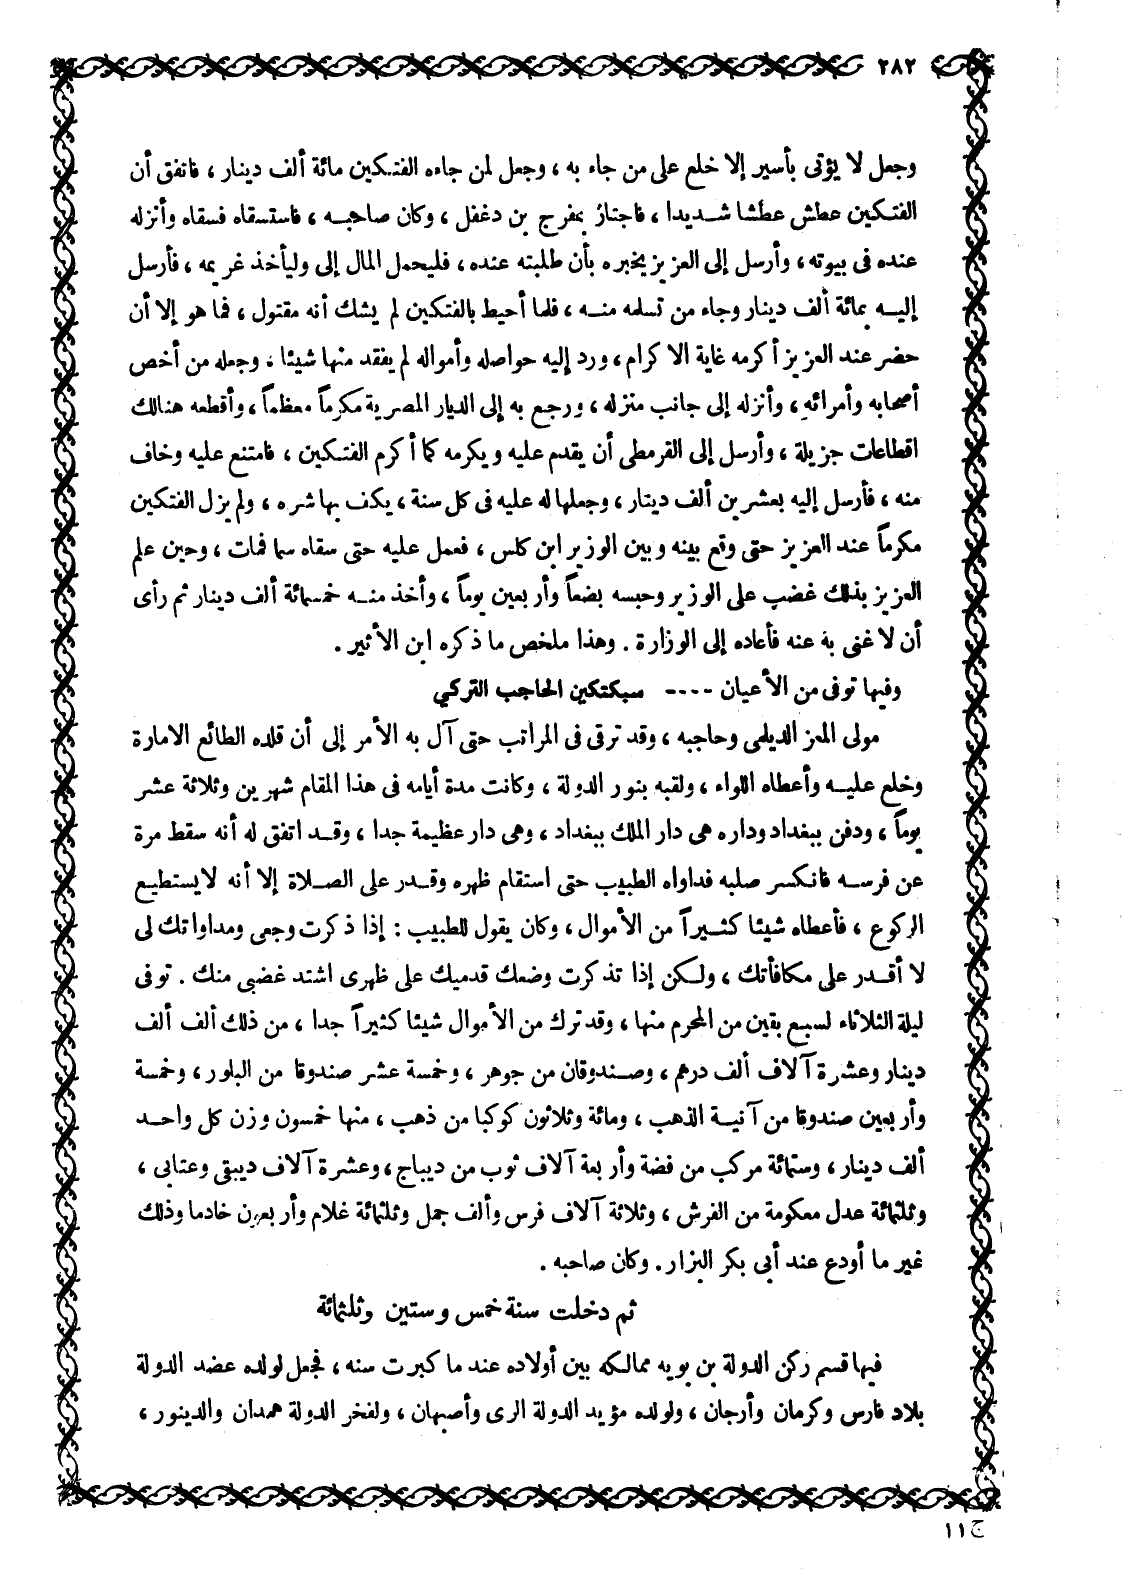 ٢٨٢
وجعل لا يؤتى بأسير إلا خلع على من جاء به ، وجعل لمن جاءه الفتكين مائة ألف دينار ، فاتفق أن
الفتكين عطش عطشا شديدا ، فاجتاز بمفرج بن دغفل ، وكان صاحبه ، فاستسقاه فسقاه وأنزله
عنده فى بيوته ، وأرسل إلى العزيز يخبره بأن طلبته عنده ، فليحمل المال إلى وليأخذ غريمه ، فأرسل
إليه بمائة ألف دينار وجاء من تسلمه منه ، فلما أحيط بالفتكين لم يشك أنه مقتول ، فما هو إلا أن
حضر عند العزيز أكرمه غاية الاكرام ، ورد إليه حواصله وأمواله لم يفقد منها شيئا . وجعله من أخص
أصحابه وأمرائه ، وأنزله إلى جانب منزله ، ورجع به إلى الديار المصرية مكرماً معظماً ، وأقطعه هنالك
اقطاعات جزيلة ، وأرسل إلى القرمطى أن يقدم عليه ويكرمه كما أكرم الفتكين ، فامتنع عليه وخاف
منه ، فأرسل إليه بعشرين ألف دينار ، وجعلها له عليه فى كل سنة ، يكف بها شره ، ولم يزل الفتكين
مكرماً عند العزيز حتى وقع بينه وبين الوزير ابن كلس ، فعمل عليه حتى سقاه سما فمات ، وحين علم
العزيز بذلك غضب على الوزير وحبسه بضعاً وأربعين يوماً ، وأخذ منه خمسمائة ألف دينار ثم رأى
أن لا غنى به عنه فأعاده إلى الوزارة . وهذا ملخص ما ذكره ابن الأثير .
وفيها توفى من الأعيان ---- سبكتكين الحاجب التركي
مولى المعز الديلمى وحاجبه ، وقد ترقى فى المراتب حتى آل به الأمر إلى أن قلده الطائع الامارة
وخلع عليه وأعطاه اللواء ، ولقبه بنور الدولة ، وكانت مدة أيامه فى هذا المقام شهرين وثلاثة عشر
يوماً ، ودفن ببغداد وداره هى دار الملك ببغداد ، وهى دار عظيمة جدا ، وقد اتفق له أنه سقط مرة
عن فرسه فانكسر صلبه فداواه الطبيب حتى استقام ظهره وقدر على الصلاة إلا أنه لا يستطيع
الركوع ، فأعطاه شيئا كثيراً من الأموال ، وكان يقول للطبيب : إذا ذكرت وجعى ومداواتك لى
لا أقدر على مكافأتك ، ولكن إذا تذكرت وضعك قدميك على ظهرى اشتد غضبى منك . توفى
ليلة الثلاثاء لسبع بقين من المحرم منها ، وقد ترك من الأموال شيئا كثيراً جدا ، من ذلك ألف ألف
دينار وعشرة آلاف ألف درهم ، وصندوقان من جوهر ، وخمسة عشر صندوقا من البلور ، وخمسة
وأربعين صندوقا من آنية الذهب ، ومائة وثلاثون كوكبا من ذهب ، منها خمسون وزن كل واحد
ألف دينار ، وستمائة مركب من فضة وأربعة آلاف ثوب من ديباج ، وعشرة آلاف ديبقى وعتابى ،
وثلثمائة عدل معكومة من الفرش ، وثلاثة آلاف فرس وألف جمل وثلثمائة غلام وأربعون خادما وذلك
غير ما أودع عند أبى بكر البزار . وكان صاحبه .
ثم دخلت سنة خمس وستين وثلثمائة
فيها قسم ركن الدولة بن بويه ممالكه بين أولاده عند ما كبرت سنه ، فجعل لولده عضد الدولة
بلاد فارس وكرمان وأرجان ، ولولده مؤيد الدولة الرى وأصبهان ، ولفخر الدولة همدان والدينور ،
ج ١١